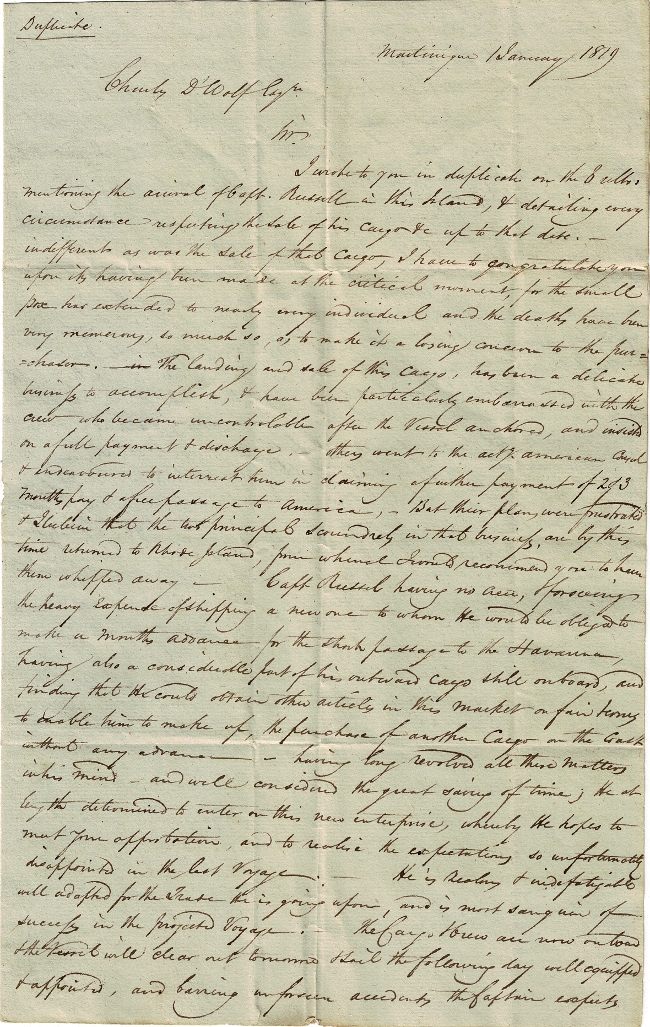 Duplicate.
Martinique 1 January 1819
Charles D'Wolf Esqre.
Sir,
I wrote to you in duplicate on the 8 ulto.
mentioning the arrival of Capt. Russell in this Island, & detailing every
circumstance respecting the sale of his cargo &c up to that date. —
indifferent as was the sale of that Cargo, I have to congratulate you
upon its having been made at the critical moment, for the small
pox has extended to nearly every individual and the deaths have been
very numerous, so much so, as to make it a losing concern to the pur=
=chaser. — The landing and sale of this cargo, has been a delicate
business to accomplish, & have been particularly embarrassed with the
crew who became uncontrolable after the Vessel anchored, and insisted
on a full payment & discharge. — others went to the actg. american Consul
& endeavoured to interest him in claiming a further payment of 2 & 3
months pay & a free passage to America, – But their plans were frustrated
& I believe that the two principal scoundrels in that business, are by this
time returned to Rhode Island, from whence I would recommend you to have
them whipped away — Capt Russel having no crew, & forseeing
the heavy expense of shipping a new one to whom He would be obliged to
make a months advance for the short passage to the Havanna,
having also a considerable part of his outward cargo still onboard, and
finding that He could obtain other articles in this market on fair terms
to enable him to make up, the purchase of another Cargo on the Coast
without any advance — having long revolved all these matters
in his mind – and well considered the great saving of time; He at
length determined to enter on this new enterprise, whereby He hopes to
meet your approbation, and to realise the expectations so unfortunately
disappointed in the last Voyage. — He is zealous & indefatigable
well adapted for the Trade he is going upon, and is most sanguine of
success in the projected Voyage. – The Cargo & Crew are now onboard
& the Vessel will clear out tomorrow & sail the following day well equipped
& appointed, and barring unforseen accidents the Captain expects